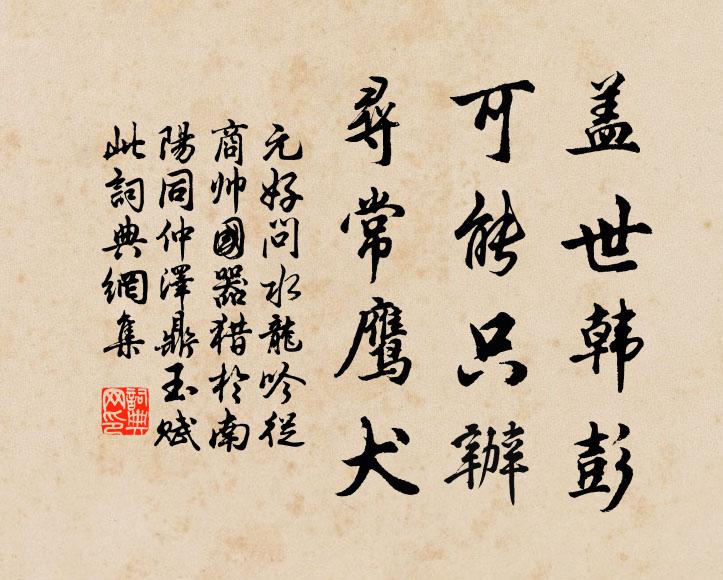 盖世韩彭
可能只辦
尋常鷹犬
元好问水龍吟從
商帅國器猎於南
陽同仲澤鼎玉赋
此詞典網集
詞典网印